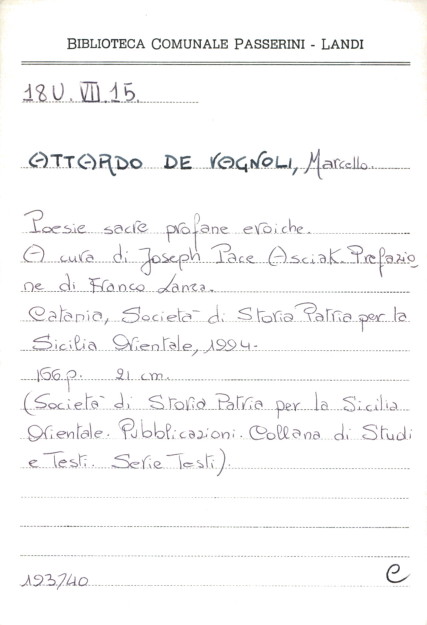 BIBLIOTECA COMUNALE PASSERINI - LANDI
18U. VII. 15.
ATTARDO DE VAGNOLI, Marcello.
Poesie sacre profane eroiche.
A cura di Joseph Pace Asciak. Prefazio
ne di Franco Lanza.
Catania, Società di Storia Patria per la
Sicilia Orientale, 1994.
166 p. 21 cm.
(Società di Storia Patria per la Sicilia
Orientale. Pubblicazioni. Collana di Studi
e Testi. Serie Testi).
193740 e